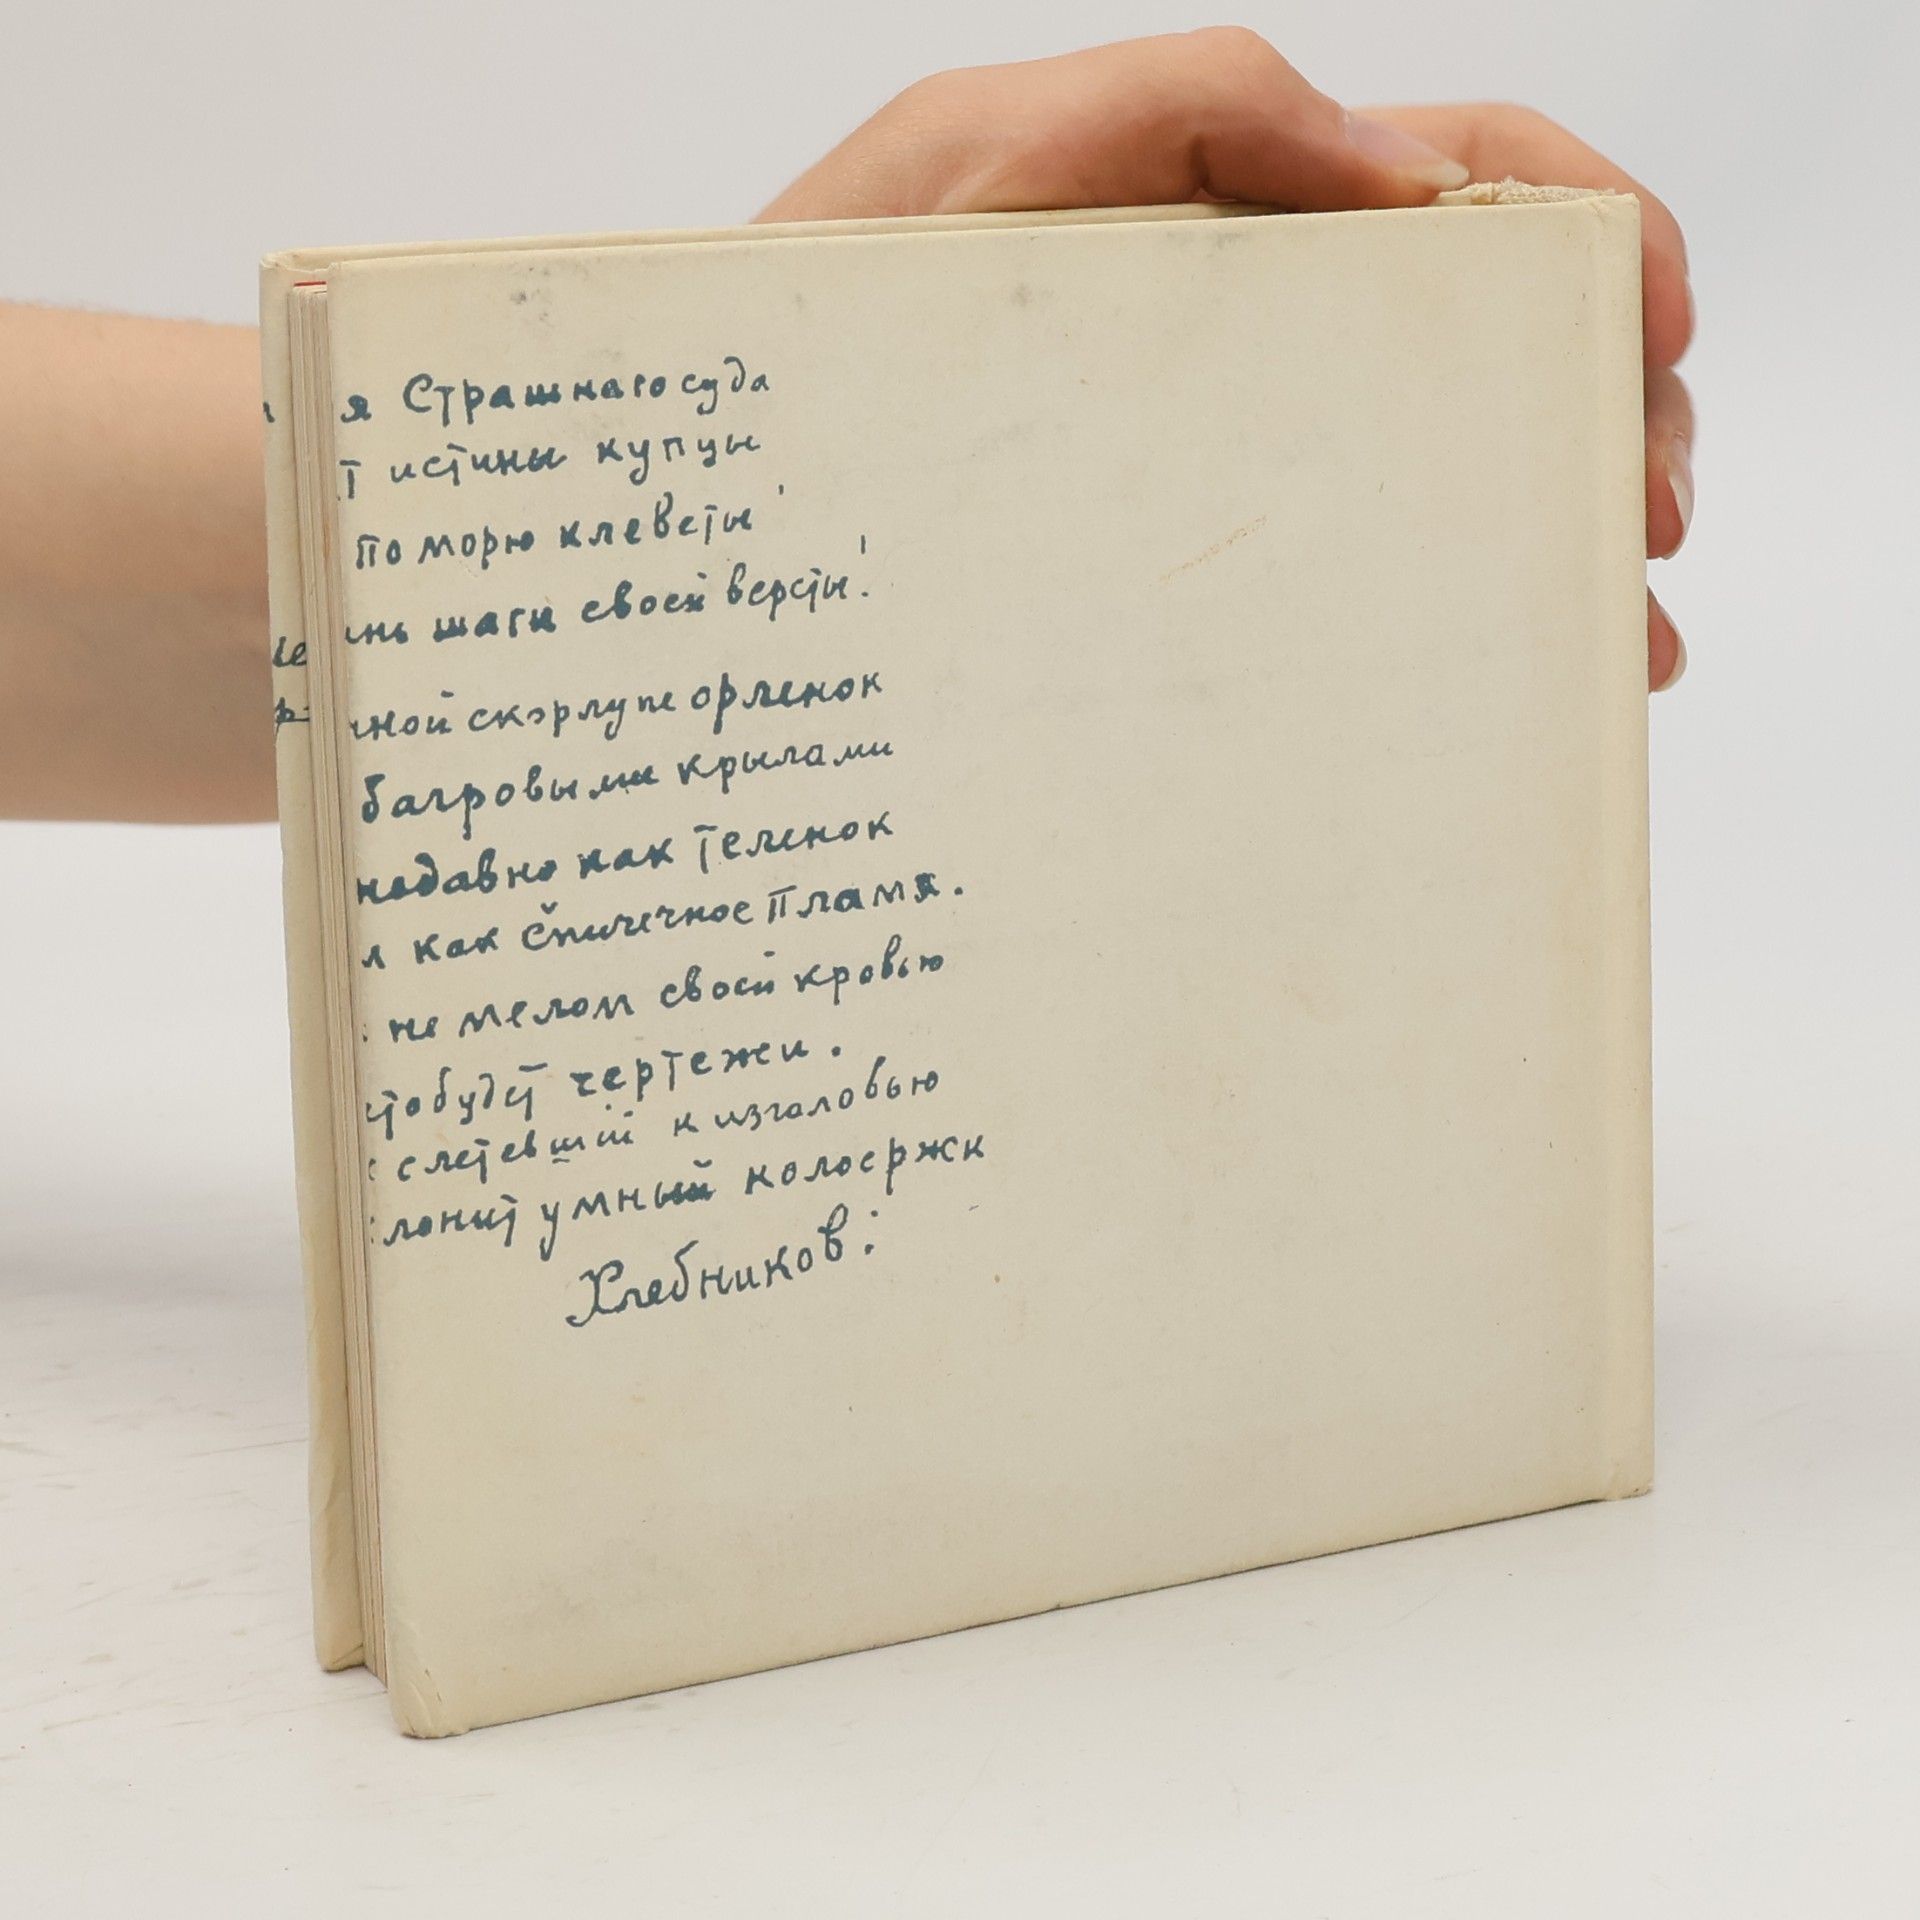 я Страшнаго суда
т истины купцы
по морю клеветы
нь шаги своей версты!
ной скорлупе орленок
багровыми крылами
недавно как теленок
л как спичечное пламя.
не мелом своей кровью
что будет чертежи.
слетевший к изголовью
лонит умный колосржи
Хлебников: